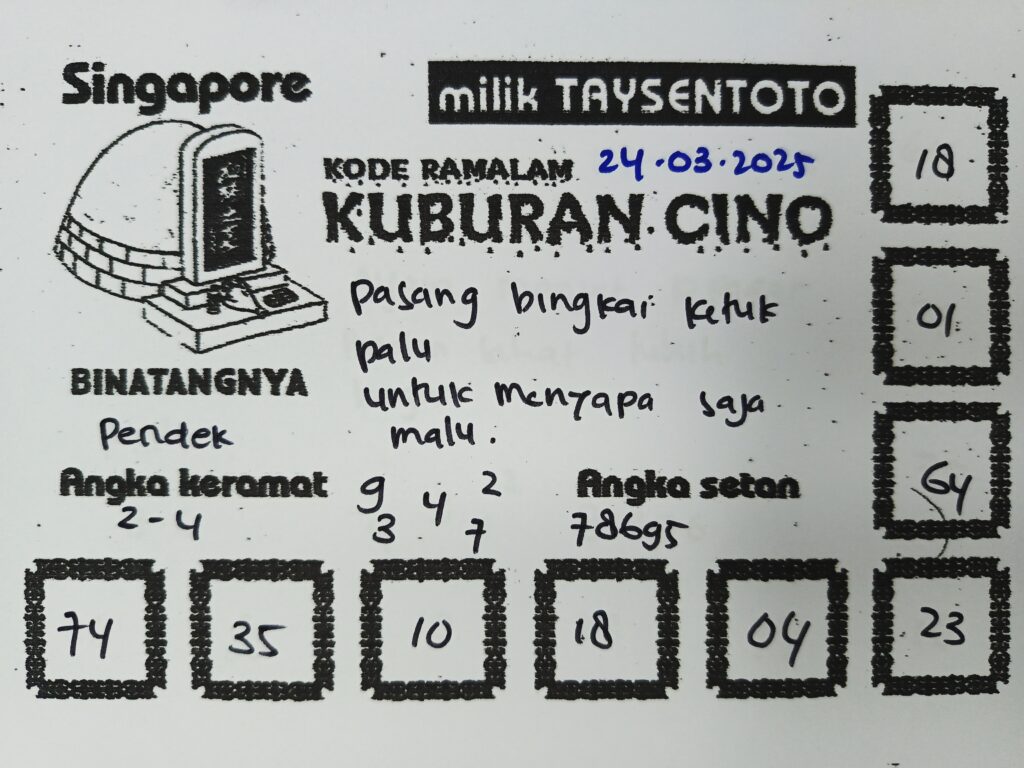 Singapore
milik TAYSENTOTO
KODE RAMALAM 24.03.2025
KUBURAN.CINO
18
01
64
Pasang bingkai ketuk
palu
untuk menyapa saja
malu.
BINATANGNYA
Pendek
Angka keramat
2-4
9 4 2
3 7
Angka setan
78695
74 35 10 18 04 23